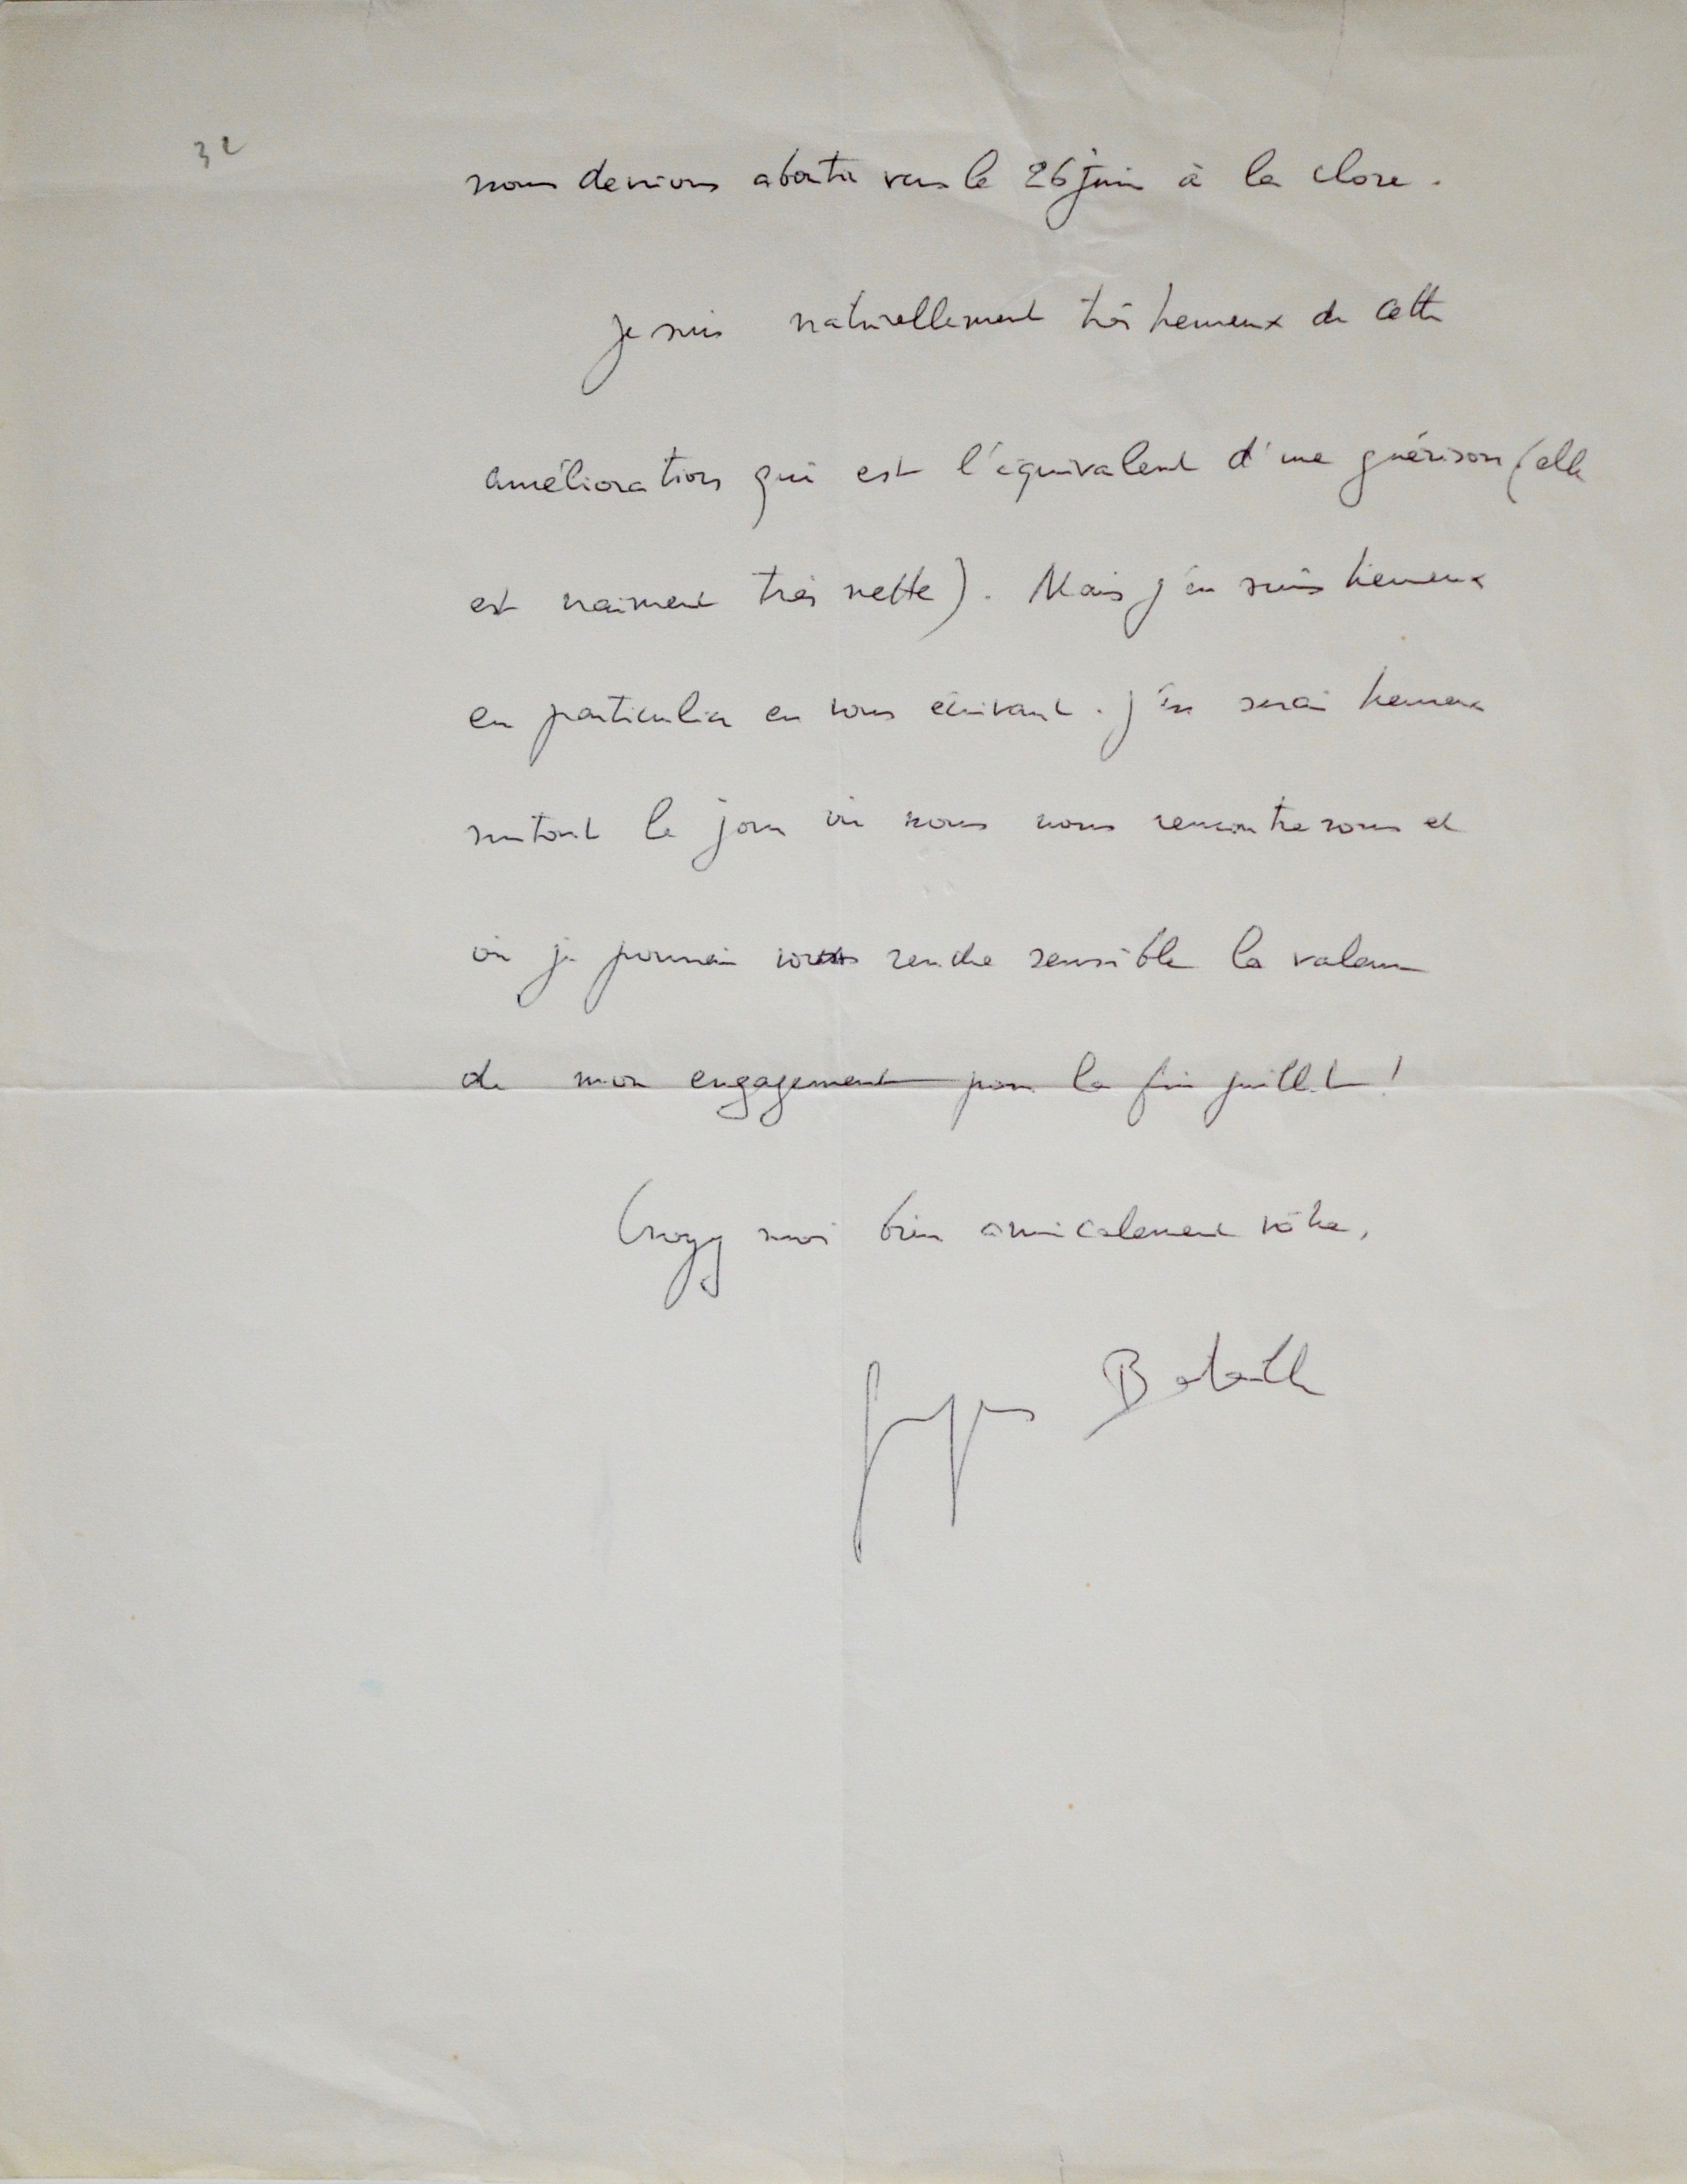 32
nous devrions aboutir vers le 26 juin à la clore.
je suis naturellement très heureux de cette
amélioration qui est l'équivalent d'une guérison (elle
est vraiment très nette). Mais j'en suis heureux
en particulier en vous écrivant. J'en serai heureux
surtout le jour où nous nous rencontrerons et
où je pourrai vous rendre sensible la valeur
de mon engagement pour la fin juillet !
Croyez moi bien amicalement vôtre,
Georges Bataille